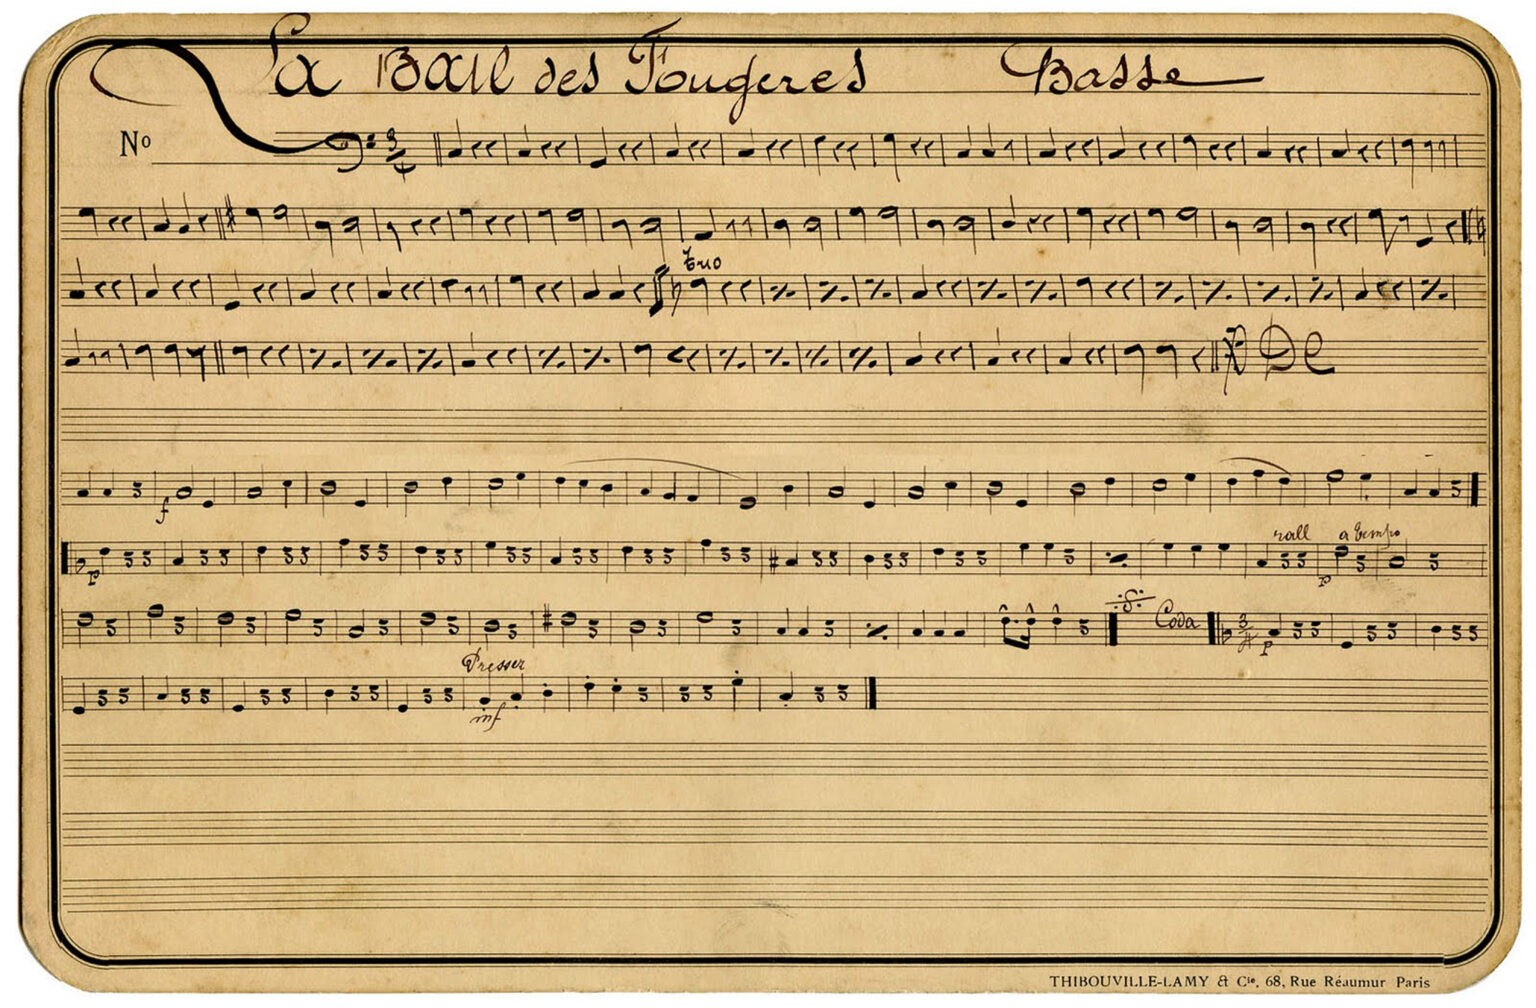 La Bail des Fougeres Basse
No
3 4
trio
DC
f
rall a tempo
p p
Coda 3 4 p
Presser
mf
THIBOUVILLE-LAMY & Cie, 68, Rue Réaumur Paris